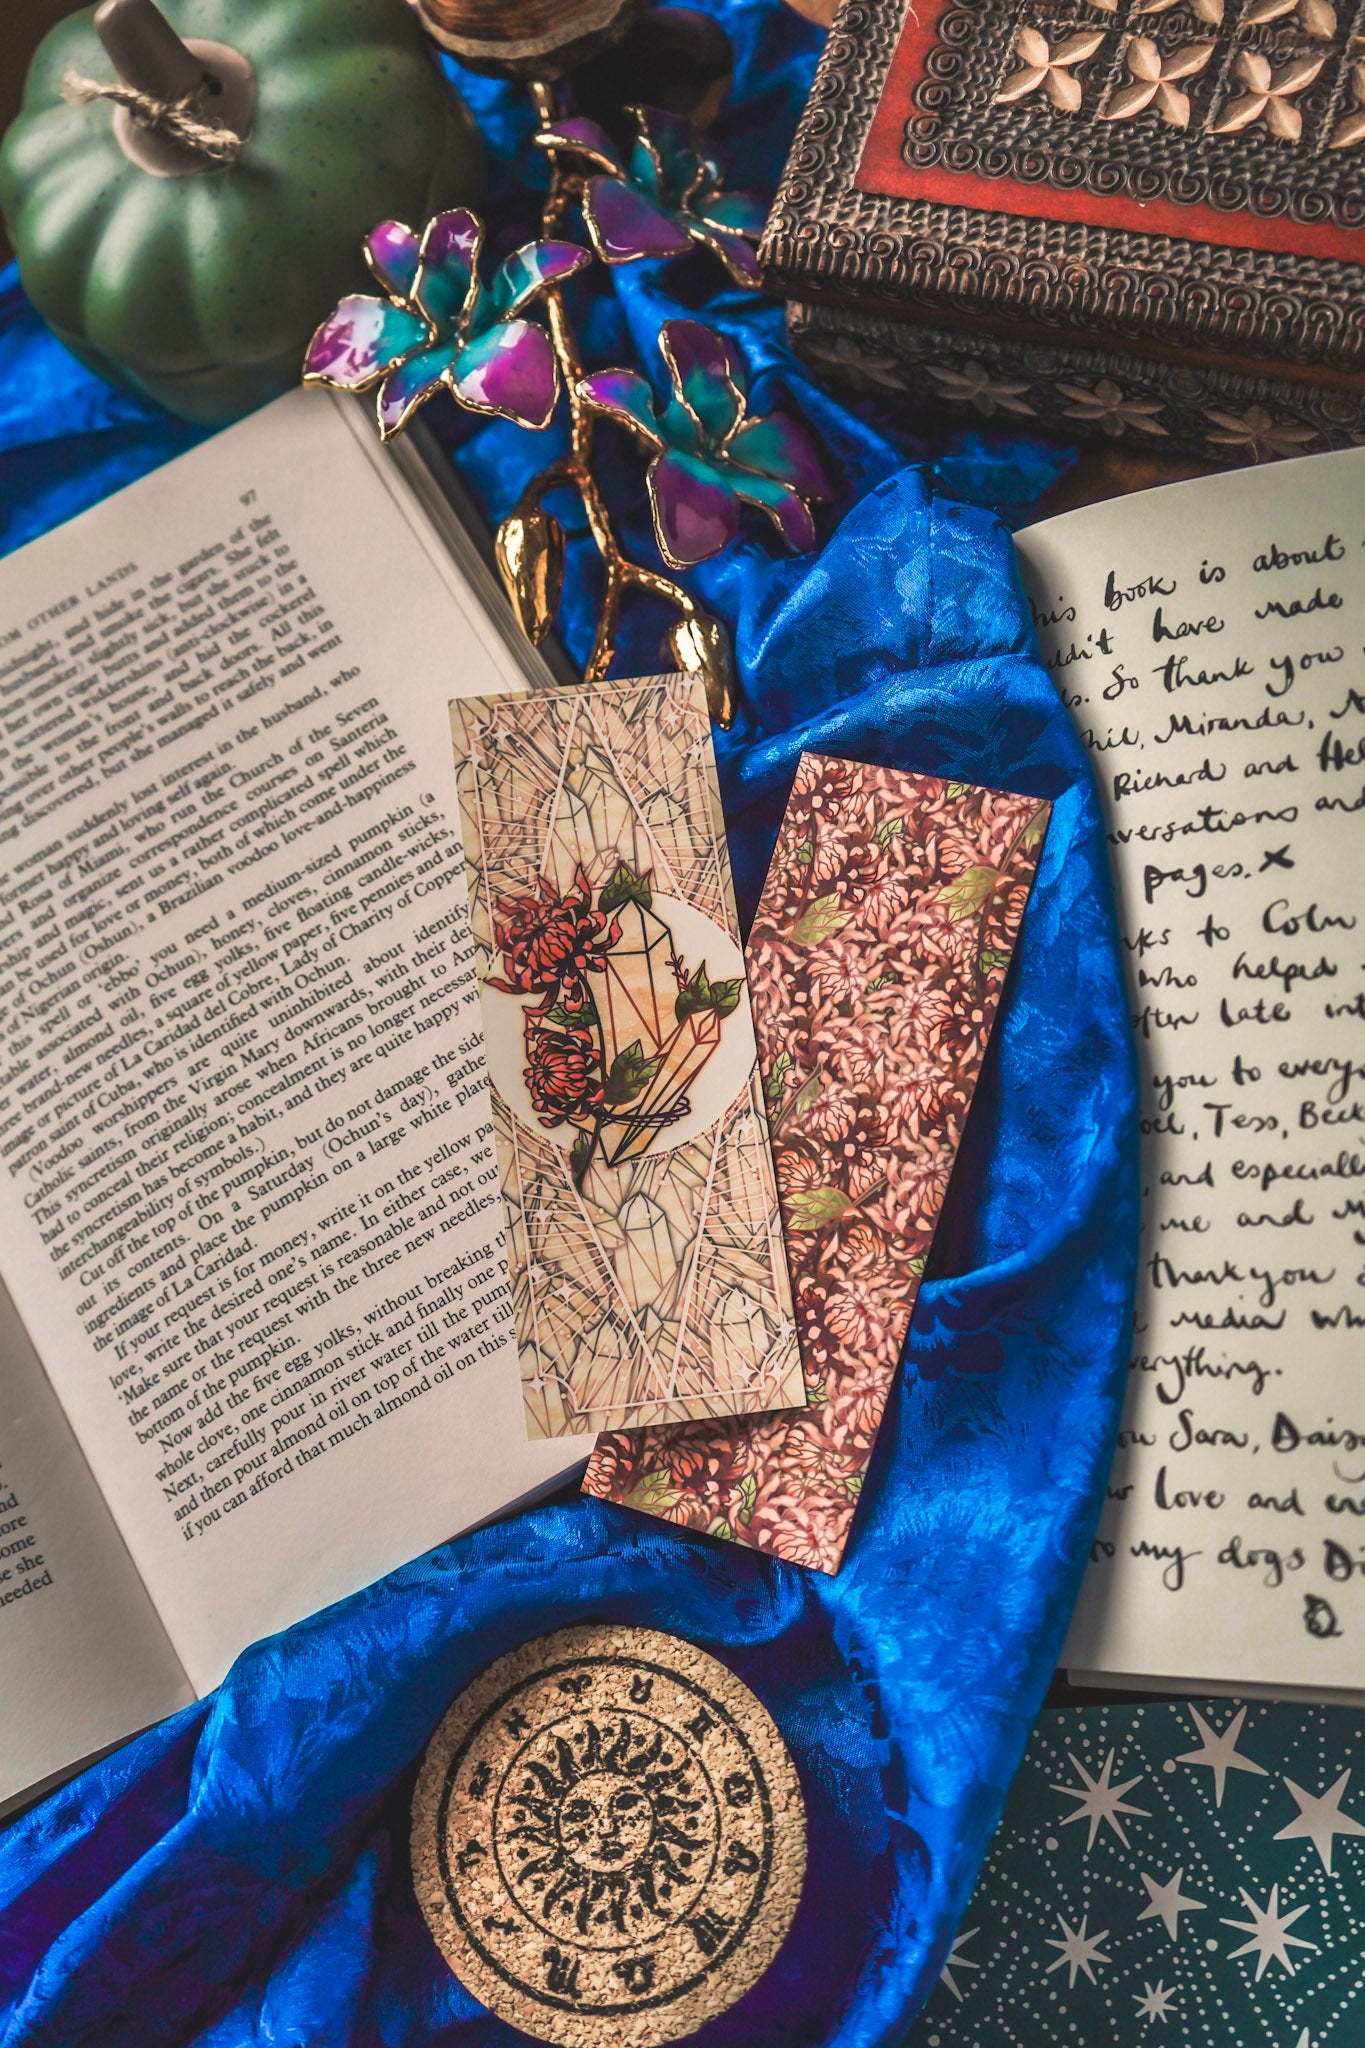 97
OM OTHER LANDS
midnight, and hide in the garden of the
husband and smoke the cigars. She felt
slightly sick, but she stuck to
her own cigar butts and added them to the
scattered widdershins (anti-clockwise) in a
the woman's house, and hid the cockerel
the front and back doors. All this
over other people's walls to reach the back, in
discovered, but she managed it safely and went
woman suddenly lost interest in the husband, who
former happy and loving self again.
Rosa of Miami, who run the Church of the Seven
and organize correspondence courses on Santeria
and magic, sent us a rather complicated spell which
be used for love or money, both of which come under the
of Ochun (Oshun), a Brazilian voodoo love-and-happiness
of Nigerian origin.
this spell or 'ebbo' you need a medium-sized pumpkin (a
associated with Ochun), honey, cloves, cinnamon sticks,
water, almond oil, five egg yolks, five floating candle-wicks,
three brand-new needles, a square of yellow paper, five pennies and an
image or picture of La Caridad del Cobre, Lady of Charity of Copper
patron saint of Cuba, who is identified with Ochun.
(Voodoo worshippers are quite uninhibited about identify
Catholic saints, from the Virgin Mary downwards, with their
This syncretism originally arose when Africans brought to
had to conceal their religion; concealment is no longer necessar
the syncretism has become a habit, and they are quite happy
interchangeability of symbols.)
Cut off the top of the pumpkin, but do not damage the side
out its contents. On a Saturday (Ochun's day), gathe
ingredients and place the pumpkin on a large white plate
the image of La Caridad.
If your request is for money, write it on the yellow pa
love, write the desired one's name. In either case, we
'Make sure that your request is reasonable and not ou
the name or the request with the three new needles,
bottom of the pumpkin.
Now add the five egg yolks, without breaking
whole clove, one cinnamon stick and finally one
Next, carefully pour in river water till the pum
and then pour almond oil on top of the water till
if you can afford that much almond oil on this
ome
she
needed
his book is about
have made
So thank you
Miranda,
Richard and
versations and
pages. x
to Colm
who helped
often late
you to every
Tess, Beck
and especiall
me and
thank you
media
verything.
Sara, Daisy
love and
to my dogs